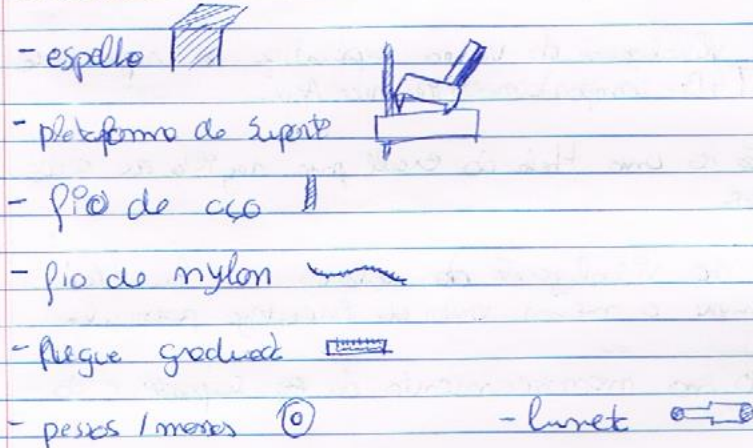 - espelho
- plataforma de suporte
- fio de aço
- fio de nylon
- Régua graduada
- pesos / massas
- luneta